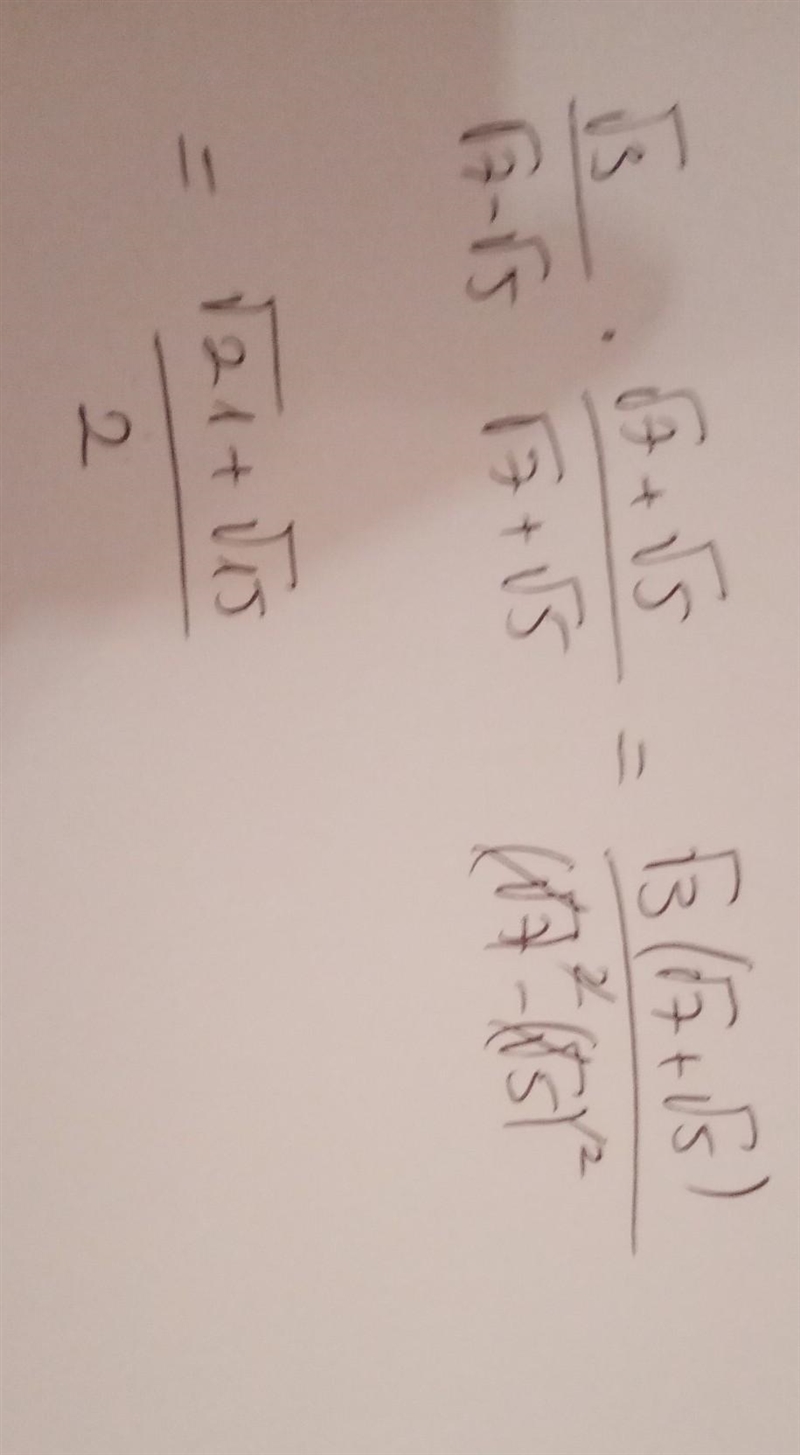 √3/(√7-√5) · (√7+√5)/(√7+√5) = √3(√7+√5)/((√7)²-(√5)²)
= (√21+√15)/2